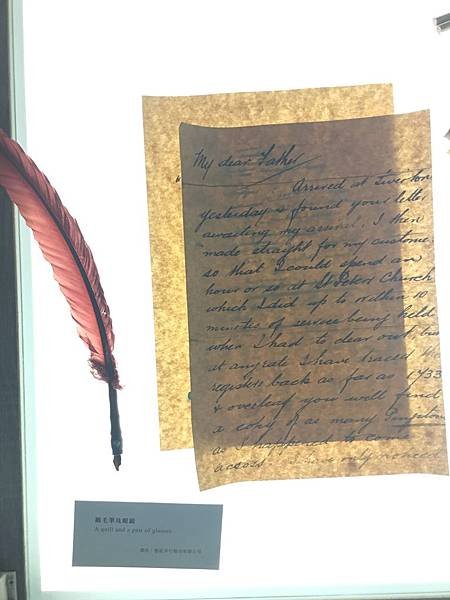 My dear Father
Arrived at Tiverton
yesterday & found your letter
awaiting my arrival. I then
made straight for my customer
so that I could spend an
hour or so at St Peters Church
which I did up to within 10
minutes of service being held
when I had to clear out but
at any rate I have traced the
registers back as far as 1733
& overleaf you will find
a copy of as many
as I happened to come
across. I have only noticed
鵝毛筆及眼鏡
A quill and a pair of glasses